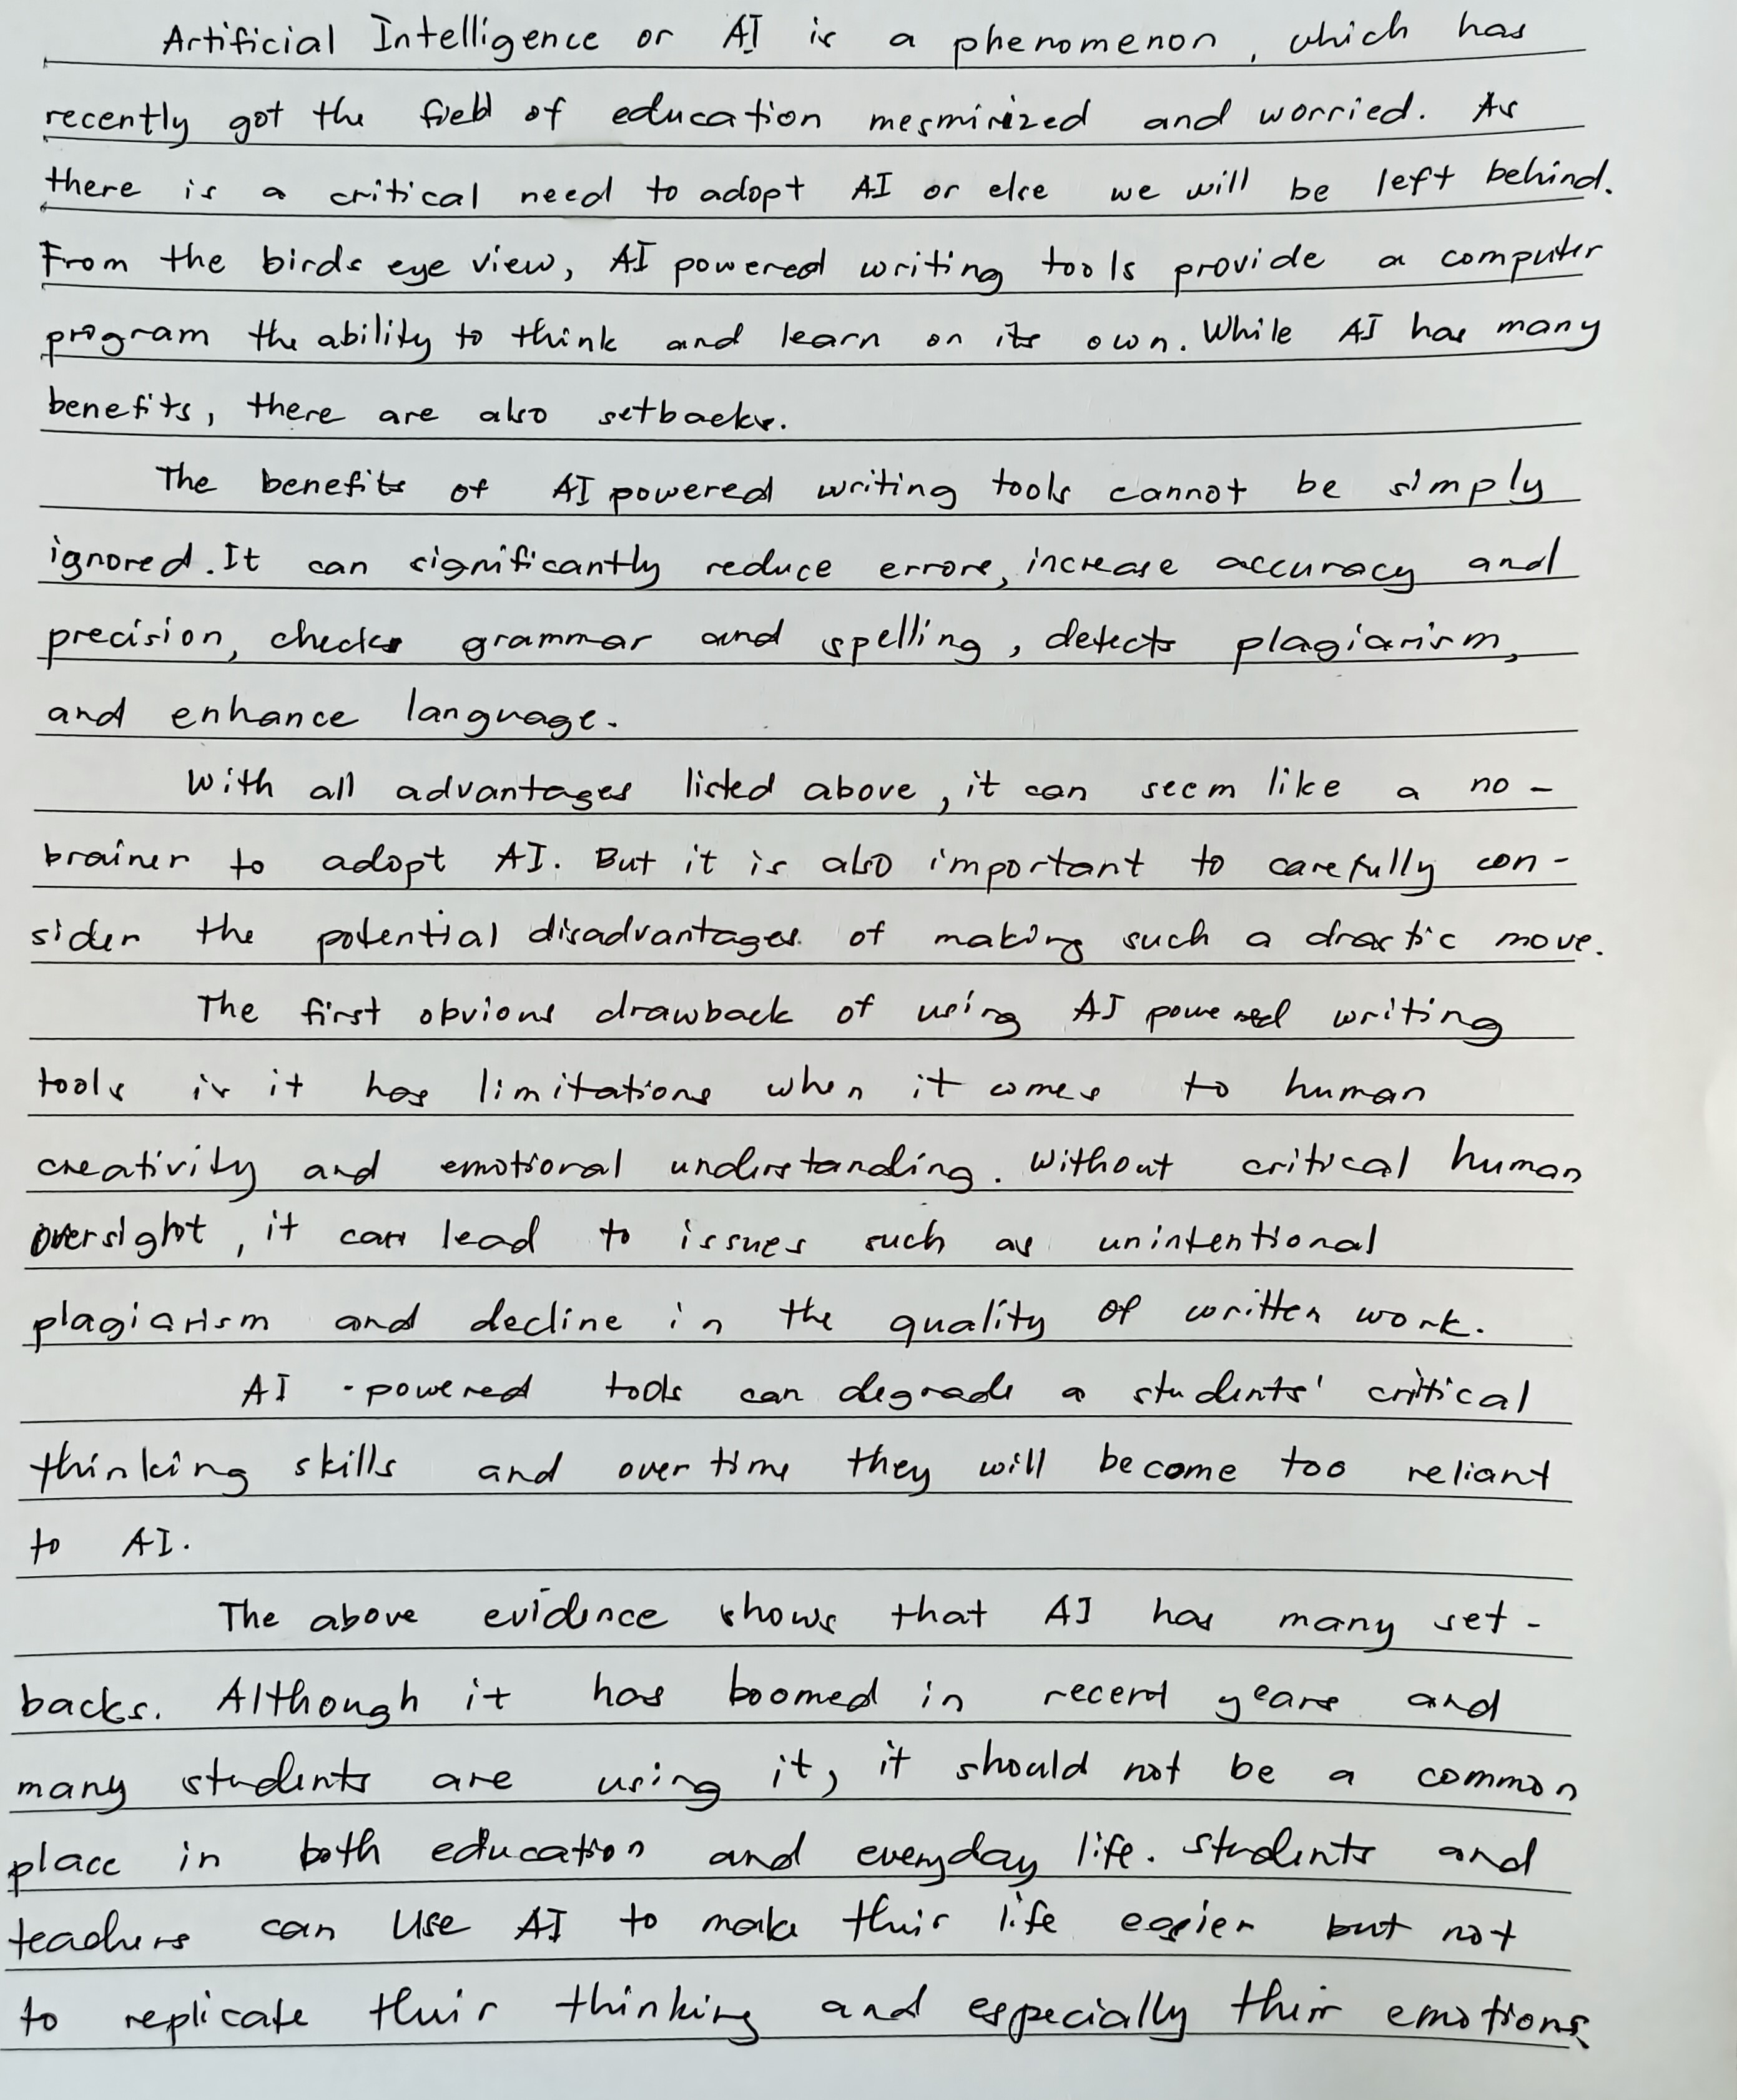 Artificial Intelligence or AI is a phenomenon, which has
recently got the field of education mesmirized and worried. As
there is a critical need to adopt AI or else we will be left behind.
From the birds eye view, AI powered writing tools provide a computer
program the ability to think and learn on its own. While AI has many
benefits, there are also setbacks.
The benefits of AI powered writing tools cannot be simply
ignored. It can significantly reduce errors, increase accuracy and
precision, checks grammar and spelling, detects plagiarism,
and enhance language.
With all advantages listed above, it can seem like a no-
brainer to adopt AI. But it is also important to carefully con-
sider the potential disadvantages of making such a drastic move.
The first obvious drawback of using AI powered writing
tools is it has limitations when it comes to human
creativity and emotional understanding. Without critical human
oversight, it can lead to issues such as unintentional
plagiarism and decline in the quality of written work.
AI-powered tools can degrade a students' critical
thinking skills and over time they will become too reliant
to AI.
The above evidence shows that AI has many set-
backs. Although it has boomed in recent years and
many students are using it, it should not be a common
place in both education and everyday life. Students and
teachers can use AI to make their life easier but not
to replicate their thinking and especially their emotions.